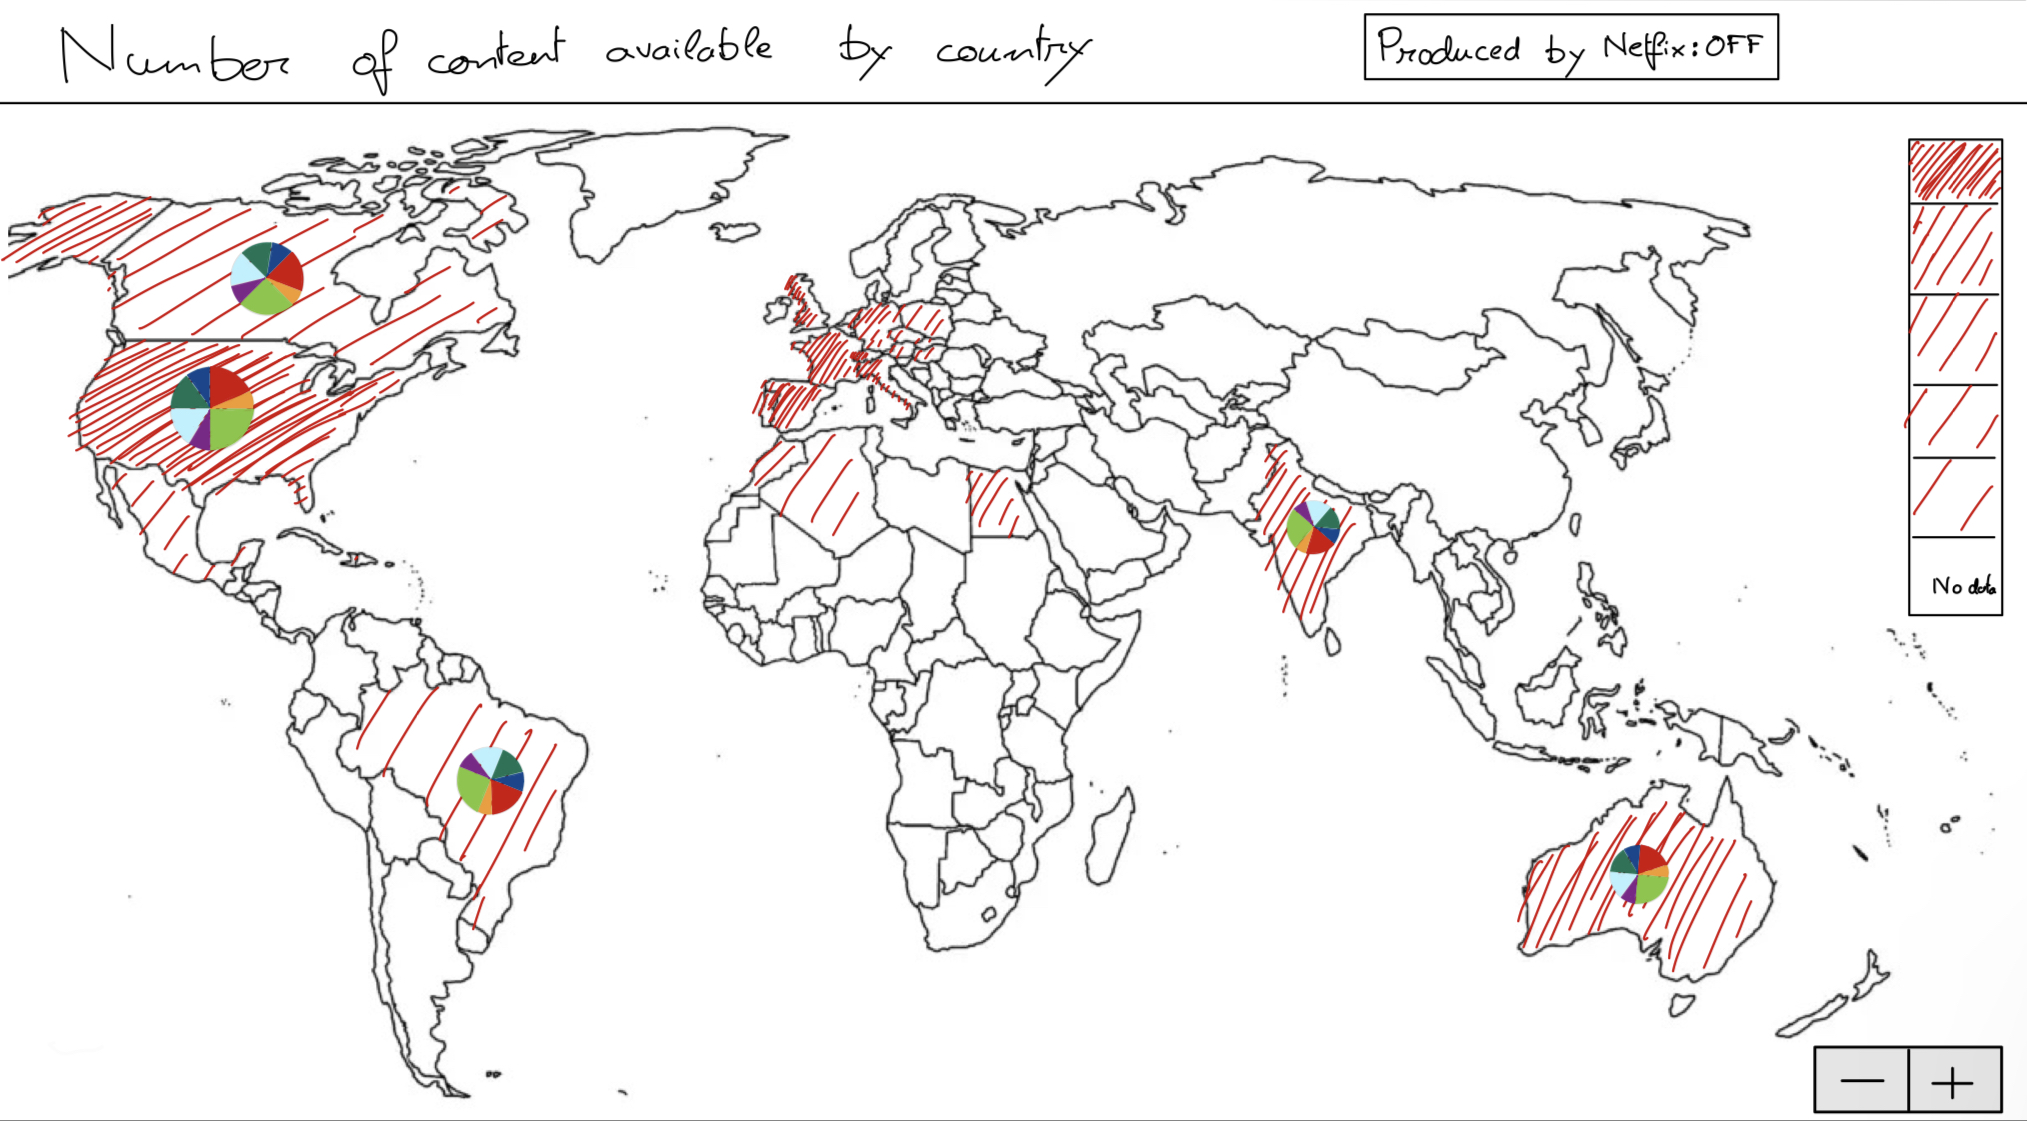 Number of content available by country
Produced by Netflix: OFF
No data
− +